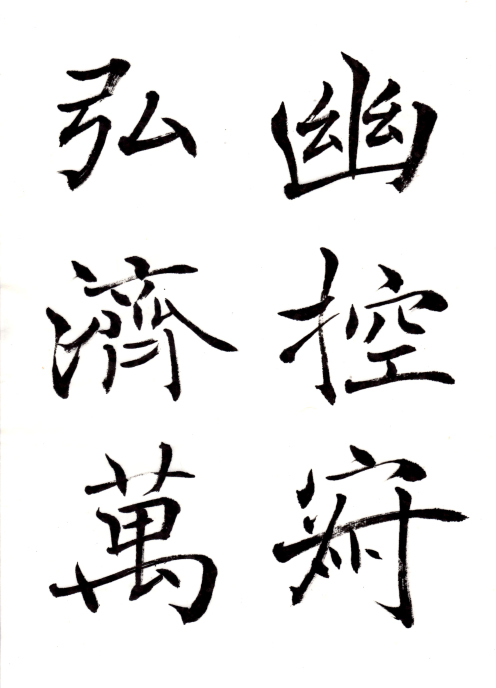 幽控寂
弘濟萬